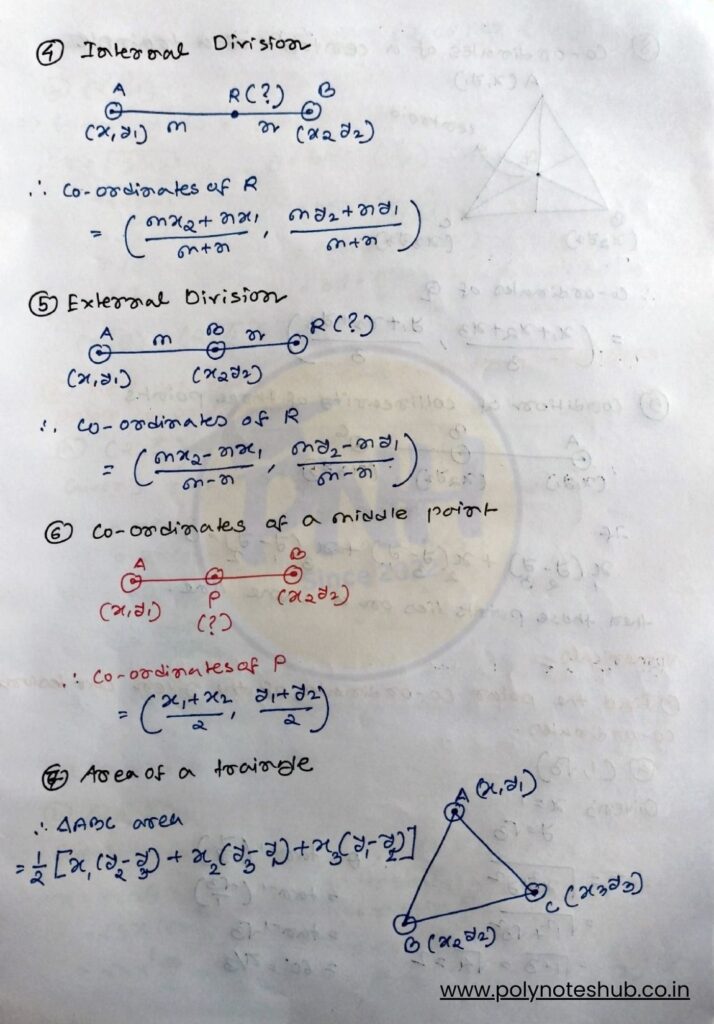 ④ Internal Division
A R(?) B
(x1y1) m n (x2y2)
∴ Co-ordinates of R
= ( (mx2 + nx1)/(m+n) , (my2 + ny1)/(m+n) )
⑤ External Division
A m B n R(?)
(x1y1) (x2y2)
∴ Co-ordinates of R
= ( (mx2 - nx1)/(m-n) , (my2 - ny1)/(m-n) )
⑥ Co-ordinates of a middle point
A B
(x1y1) P (x2y2)
(?)
∴ Co-ordinates of P
= ( (x1+x2)/2 , (y1+y2)/2 )
⑦ Area of a traingle
A (x1y1)
∴ ΔABC area
= 1/2 [x1(y2-y3) + x2(y3-y1) + x3(y1-y2)]
C (x3y3)
B (x2y2)
PNH
www.polynoteshub.co.in